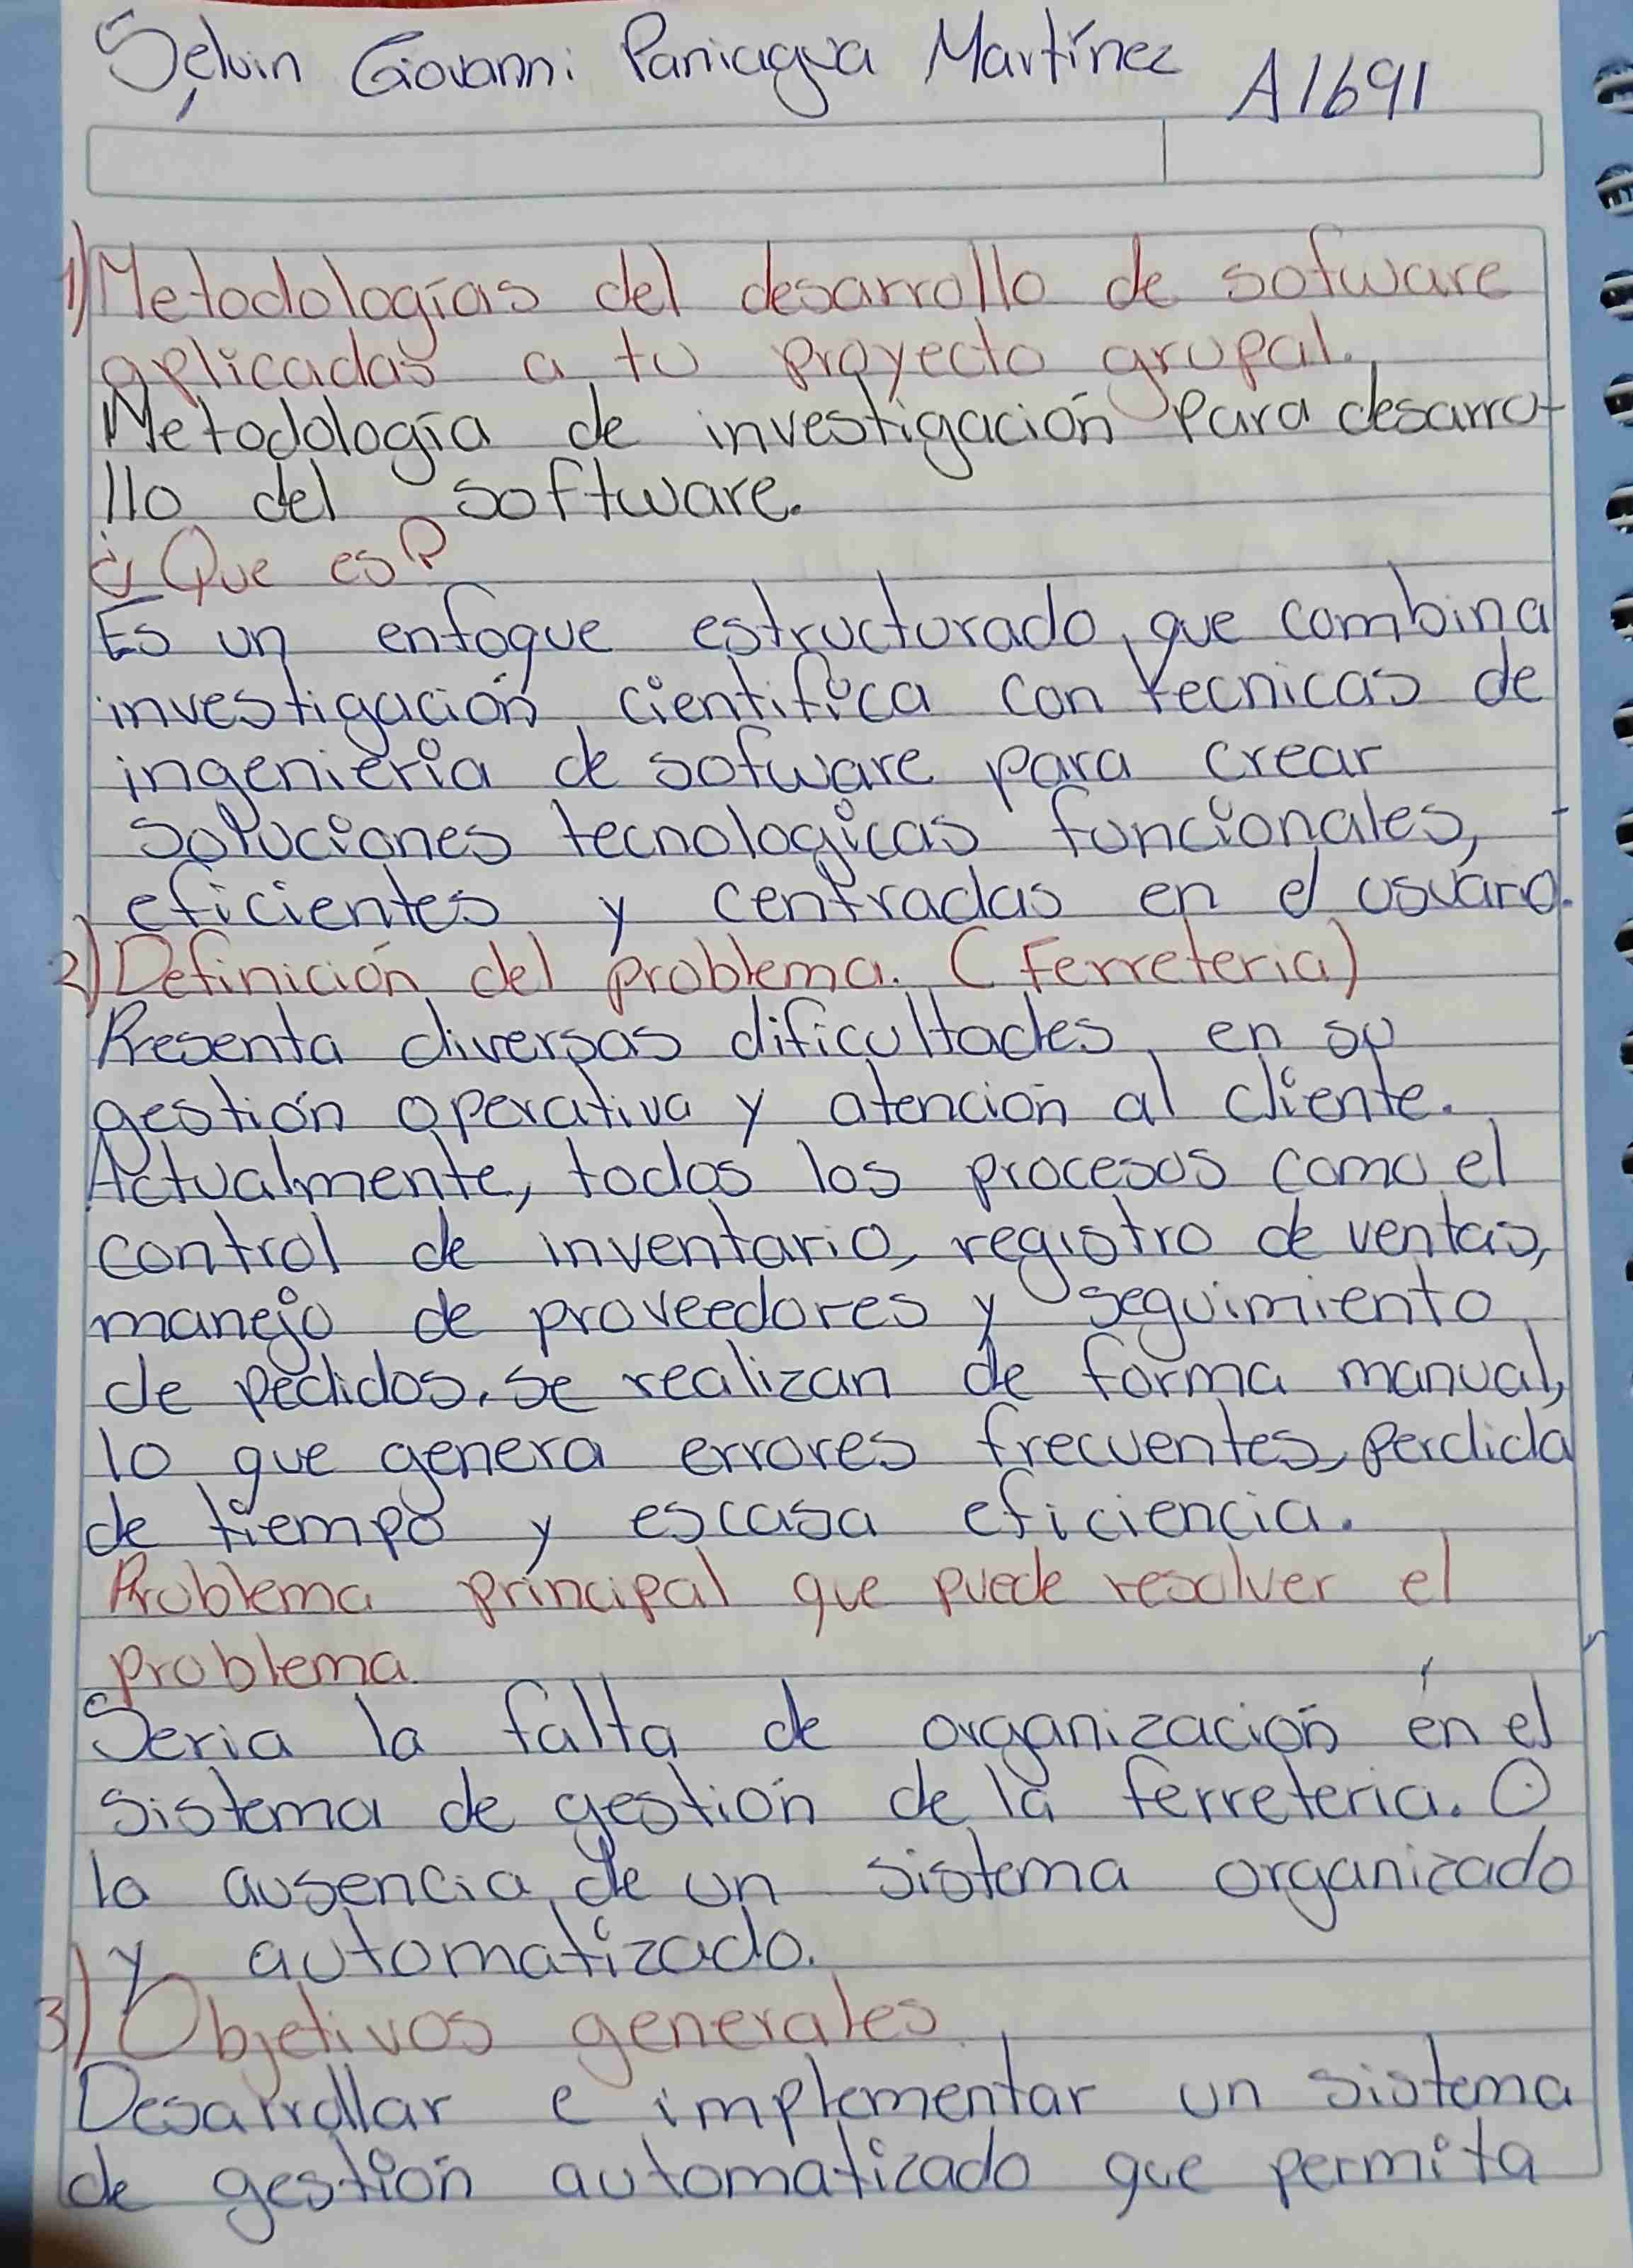 Selvin Giovanni Paniagua Martínez A1691
1) Metodologías del desarrollo de sofware
aplicadas a tu proyecto grupal.
Metodología de investigación para desarro-
llo del software.
¿Que es?
Es un enfoque estructurado que combina
investigación cientifica con tecnicas de
ingenieria de sofware para crear
soluciones tecnologicas funcionales,
eficientes y centradas en el usuario.
2) Definición del problema. (Ferreteria)
Presenta diversas dificultades en su
gestión operativa y atención al cliente.
Actualmente, todos los procesos como el
control de inventario, registro de ventas,
manejo de proveedores y seguimiento
de pedidos. se realizan de forma manual,
lo que genera errores frecuentes, perdida
de tiempo y escasa eficiencia.
Problema principal que puede resolver el
problema.
Seria la falta de organización en el
sistema de gestión de la ferreteria. O
la ausencia de un sistema organizado
y automatizado.
3) Objetivos generales.
Desarrollar e implementar un sistema
de gestión automatizado que permita